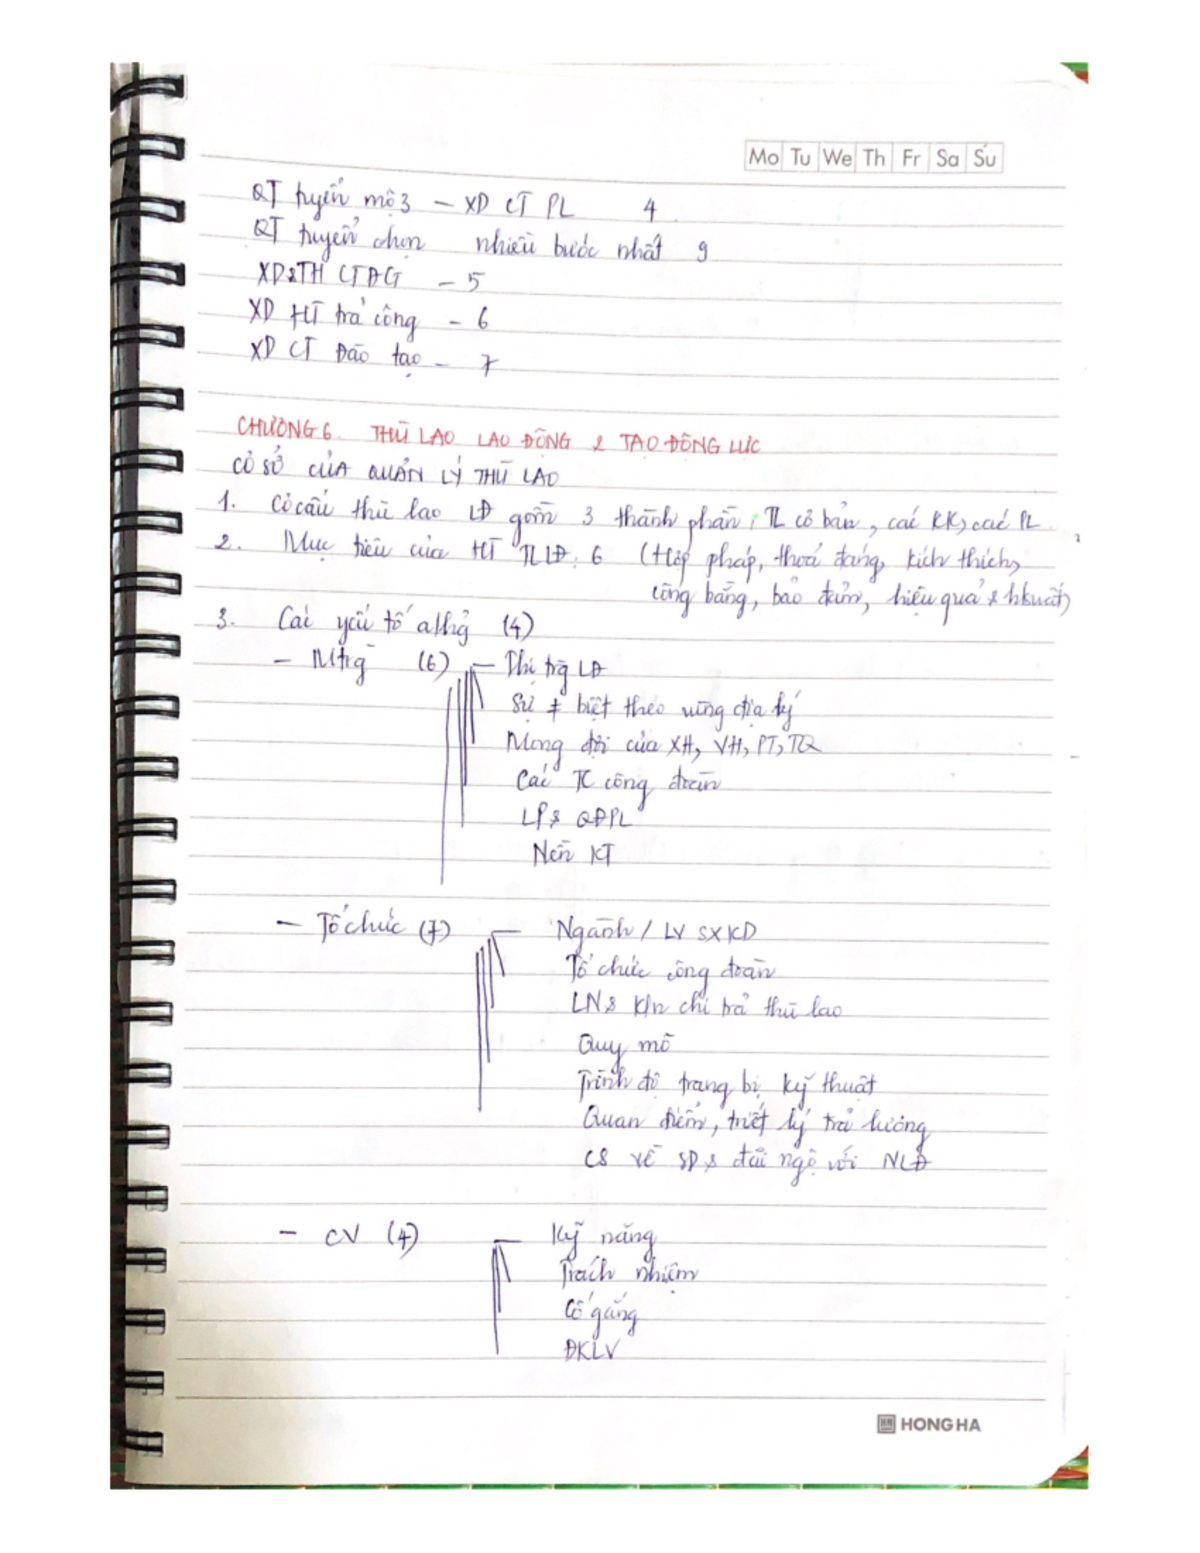 Mo Tu We Th Fr Sa Su
QT tuyển mộ 3 – XD CT PL 4
QT tuyển chọn nhiều bước nhất 9
XD&TH CTĐG – 5
XD HT trả công – 6
XD CT Đào tạo – 7
CHƯƠNG 6. THÙ LAO LAO ĐỘNG & TẠO ĐỘNG LỰC
CƠ SỞ CỦA QUẢN LÝ THÙ LAO
1. Cơ cấu thù lao LĐ gồm 3 thành phần: TL cơ bản, các KK, các PL
2. Mục tiêu của HT TLLĐ: 6 (Hợp pháp, thoả đáng, kích thích,
công bằng, bảo đảm, hiệu quả & hsuất)
3. Các yếu tố ahg̉ (4)
– Mtrg (6) – Thị trg LĐ
Sự ≠ biệt theo vùng địa lý
Mong đợi của XH, VH, PT, TQ
Các TC công đoàn
LP& QĐPL
Nền KT
– Tổ chức (7) – Ngành / LV SXKD
Tổ chức công đoàn
LN& K/n chi trả thù lao
Quy mô
Trình độ trang bị kỹ thuật
Quan điểm, triết lý trả lương
CS về SD& đãi ngộ với NLĐ
– CV (4) – Kỹ năng
Trách nhiệm
Cố gắng
ĐKLV
HONG HA